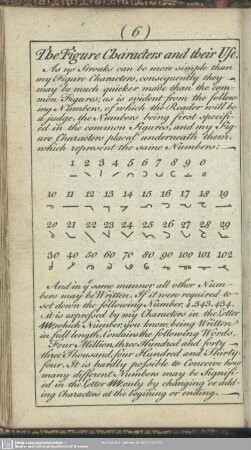 ( 6 )
The Figure Characters and their Use.
As no Stroaks can be more simple than
my Figure Characters, consequently they
may be much quicker made than the com-
mon Figures; as is evident from the follow-
ing Numbers, of which the Reader will be
a judge, the Numbers being first specifi-
ed in the common Figures, and my Fig-
ure Characters placed underneath them,
which represent the same Numbers:
1 2 3 4 5 6 7 8 9 0
10 11 12 13 14 15 16 17 18 19
20 21 22 23 24 25 26 27 28 29
30 40 50 60 70 80 90 100 101 102
And in ye same manner all other Num-
bers may be Written. If it were required to
set down the following Number, 4,343,434.
it is expressed by my Characters in the Letter
which Number, you know, being Written
in full length, Contains the following Words,
Four Million, three Hundred and forty
three Thousand, four Hundred and Thirty
four. It is hardly possible to Conceive how
many different Numbers may be Signifi-
ed in the Letter only by changing or add-
ing Characters at the begining or ending.